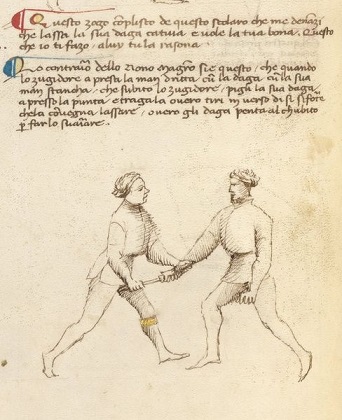 Questo zogo complisto de questo scolaro che me denançi
che lassa la sua daga cativa e vole la tua bona. Questo
che io ti fazo, aluy tu la rasona.
Lo contrario dello nono magistro si e questo, che quando
lo zugadore a presa la man drita cum la daga cum la sua
man stancha, che subito lo zugadore, pigli la sua daga
apresso la punta e traga la overo tiri in verso di si si forte
che la convegna lassare, overo gli daga penta al chubito
per far lo svariare.